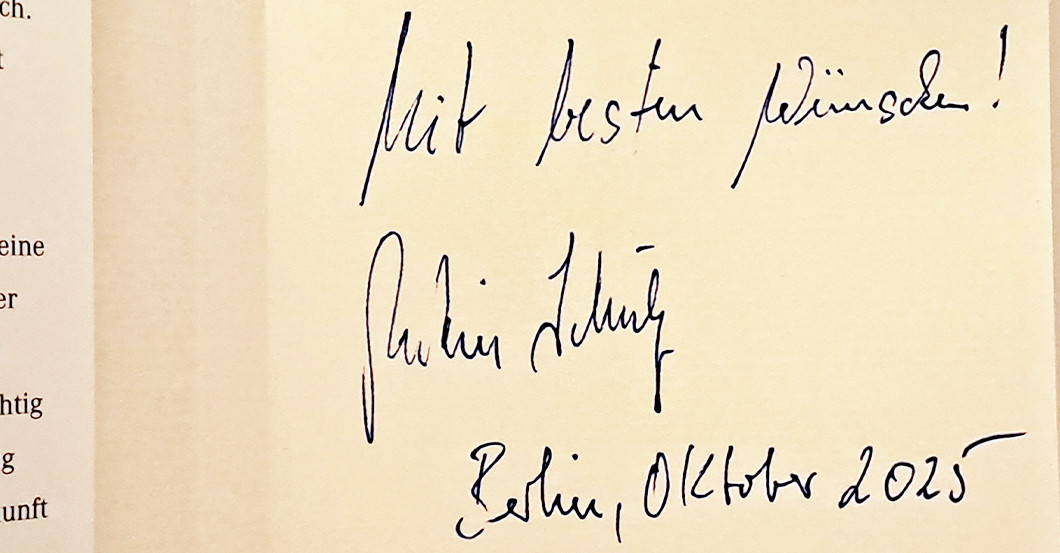 ch.
t
eine
er
htig
g
unft
Mit besten Wünschen!
Martin Schulz
Berlin, Oktober 2025